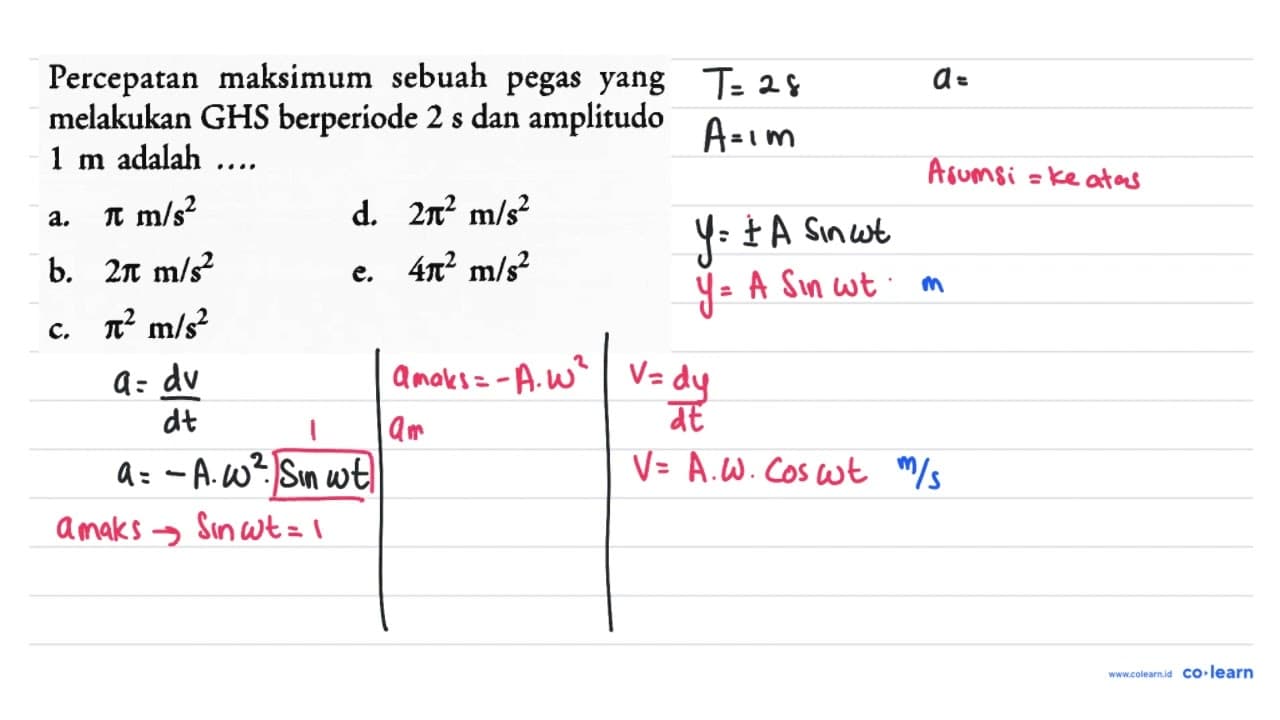 Percepatan maksimum sebuah pegas yang
melakukan GHS berperiode 2 s dan amplitudo
1 m adalah ....
a. π m/s²
d. 2π² m/s²
b. 2π m/s²
e. 4π² m/s²
c. π² m/s²
T= 2s
a=
A=1m
Asumsi = ke atas
y= ± A Sin ωt
y= A Sin ωt . m
a= dv
dt
1
a= -A.ω². Sin ωt
amaks → Sin ωt = 1
amaks = -A.ω²
am
V= dy
dt
V= A.ω. Cos ωt m/s
www.colearn.id co·learn